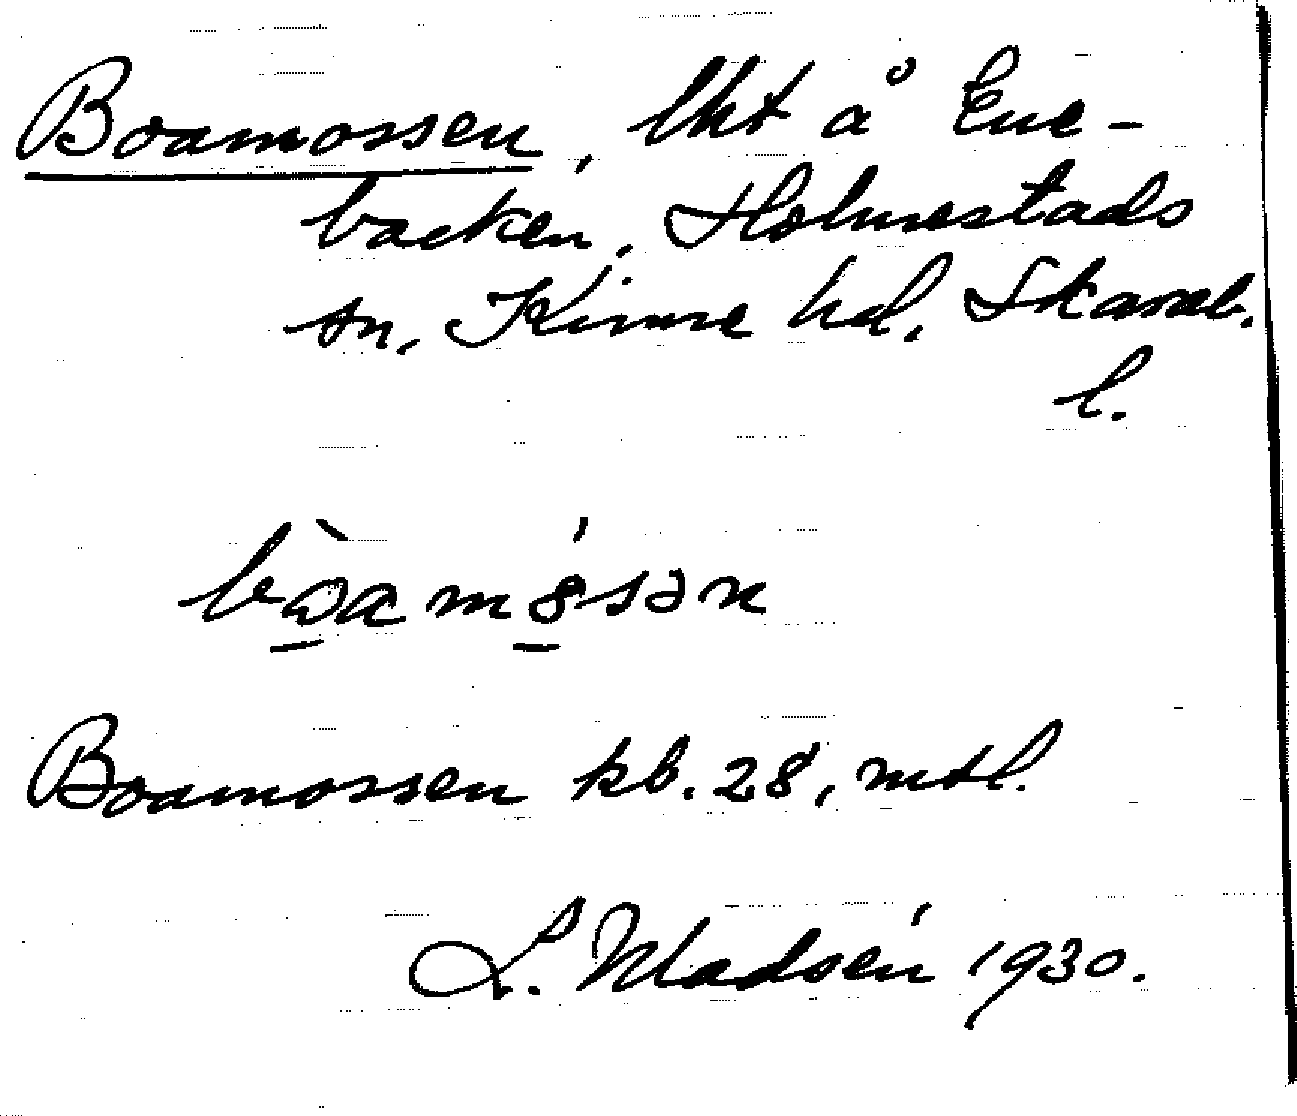 Boamossen, lht å Ene-
backen, Holmestads
sn, Kinne hd, Skarab.
l.
Boamossen kb. 28, mtl.
L. Madsén 1930.